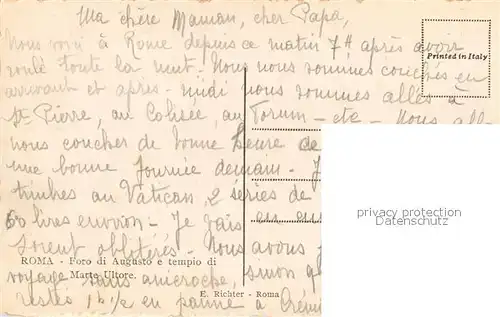 Ma chère Maman, cher Papa,
Nous voici à Rome depuis ce matin 7h après avoir
roulé toute la nuit. Nous nous sommes couchés en
Printed in Italy
arrivant et après-midi nous sommes allés à
St Pierre, au Colisée, au Forum - etc - Nous all
nous coucher de bonne heure de
une bonne journée demain - J
timbres au Vatican, 2 séries de
60 lires environ - Je
soient oblitérés - Nous avons
ROMA - Foro di Augusto e tempio di
Marte Ultore.
voyage sans anicroche, sinon q
restés 1h 1/2 en panne à
E. Richter - Roma
privacy protection
for AnkreArt.de